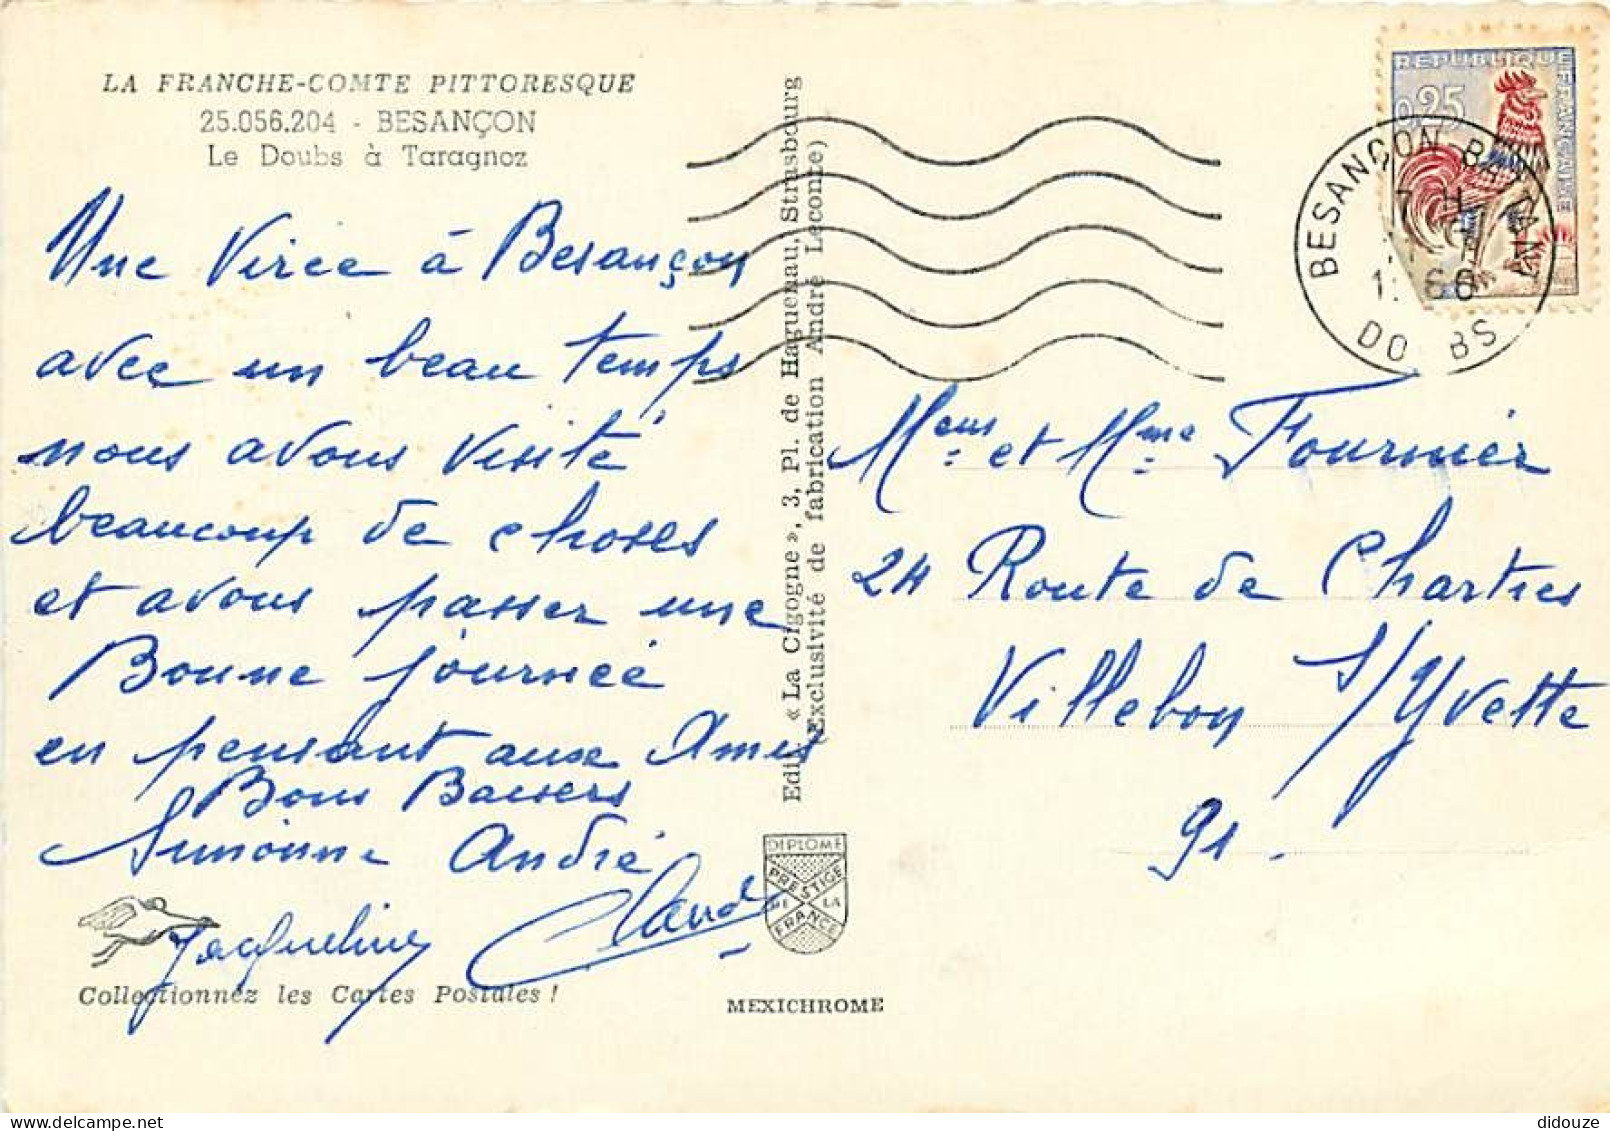 LA FRANCHE-COMTE PITTORESQUE
25.056.204 - BESANÇON
Le Doubs à Taragnoz
Une Virée à Besançon
avec un beau temps
nous avons visité
beaucoup de choses
et avons passer une
Bonne journée
en pensant aux Amis
Bons Baisers
Simonne André
Jacqueline Claude
Collectionnez les Cartes Postales !
Edit. « La Cigogne », 3, Pl. de Haguenau, Strasbourg
(Exclusivité de fabrication André Leconte)
DIPLOME
PRESTIGE
DE LA
FRANCE
MEXICHROME
REPUBLIQUE FRANCAISE
0,25
BESANÇON BATTANT
7 H
66
DOUBS
Mr et Mme Fournier
24 Route de Chartres
Villebon S/Yvette
91.
didouze